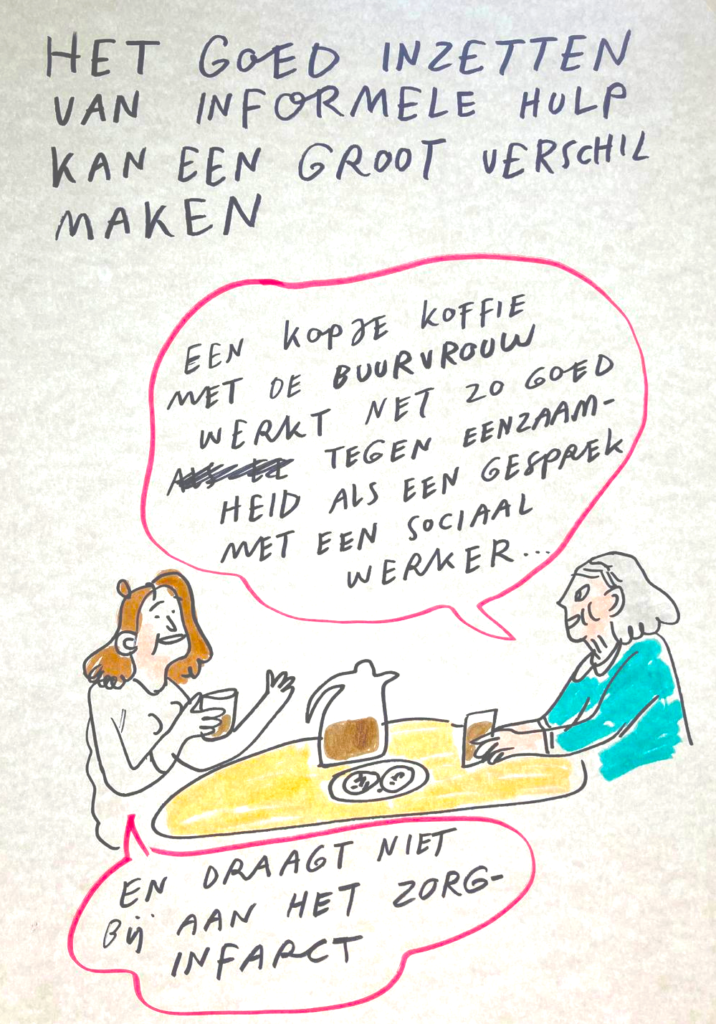 HET GOED INZETTEN
VAN INFORMELE HULP
KAN EEN GROOT VERSCHIL
MAKEN
EEN KOPJE KOFFIE
MET DE BUURVROUW
WERKT NET ZO GOED
TEGEN EENZAAM-
HEID ALS EEN GESPREK
MET EEN SOCIAAL
WERKER...
EN DRAAGT NIET
BIJ AAN HET ZORG-
INFARCT